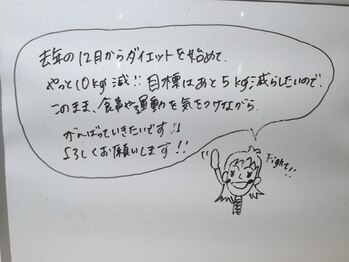 去年の12月からダイエットを始めて、
やっと10kg減!!目標はあと5kg減らしたいので、
このまま、食事や運動を気をつけながら
がんばっていきたいです!!
よろしくお願いします!!
Fight!!